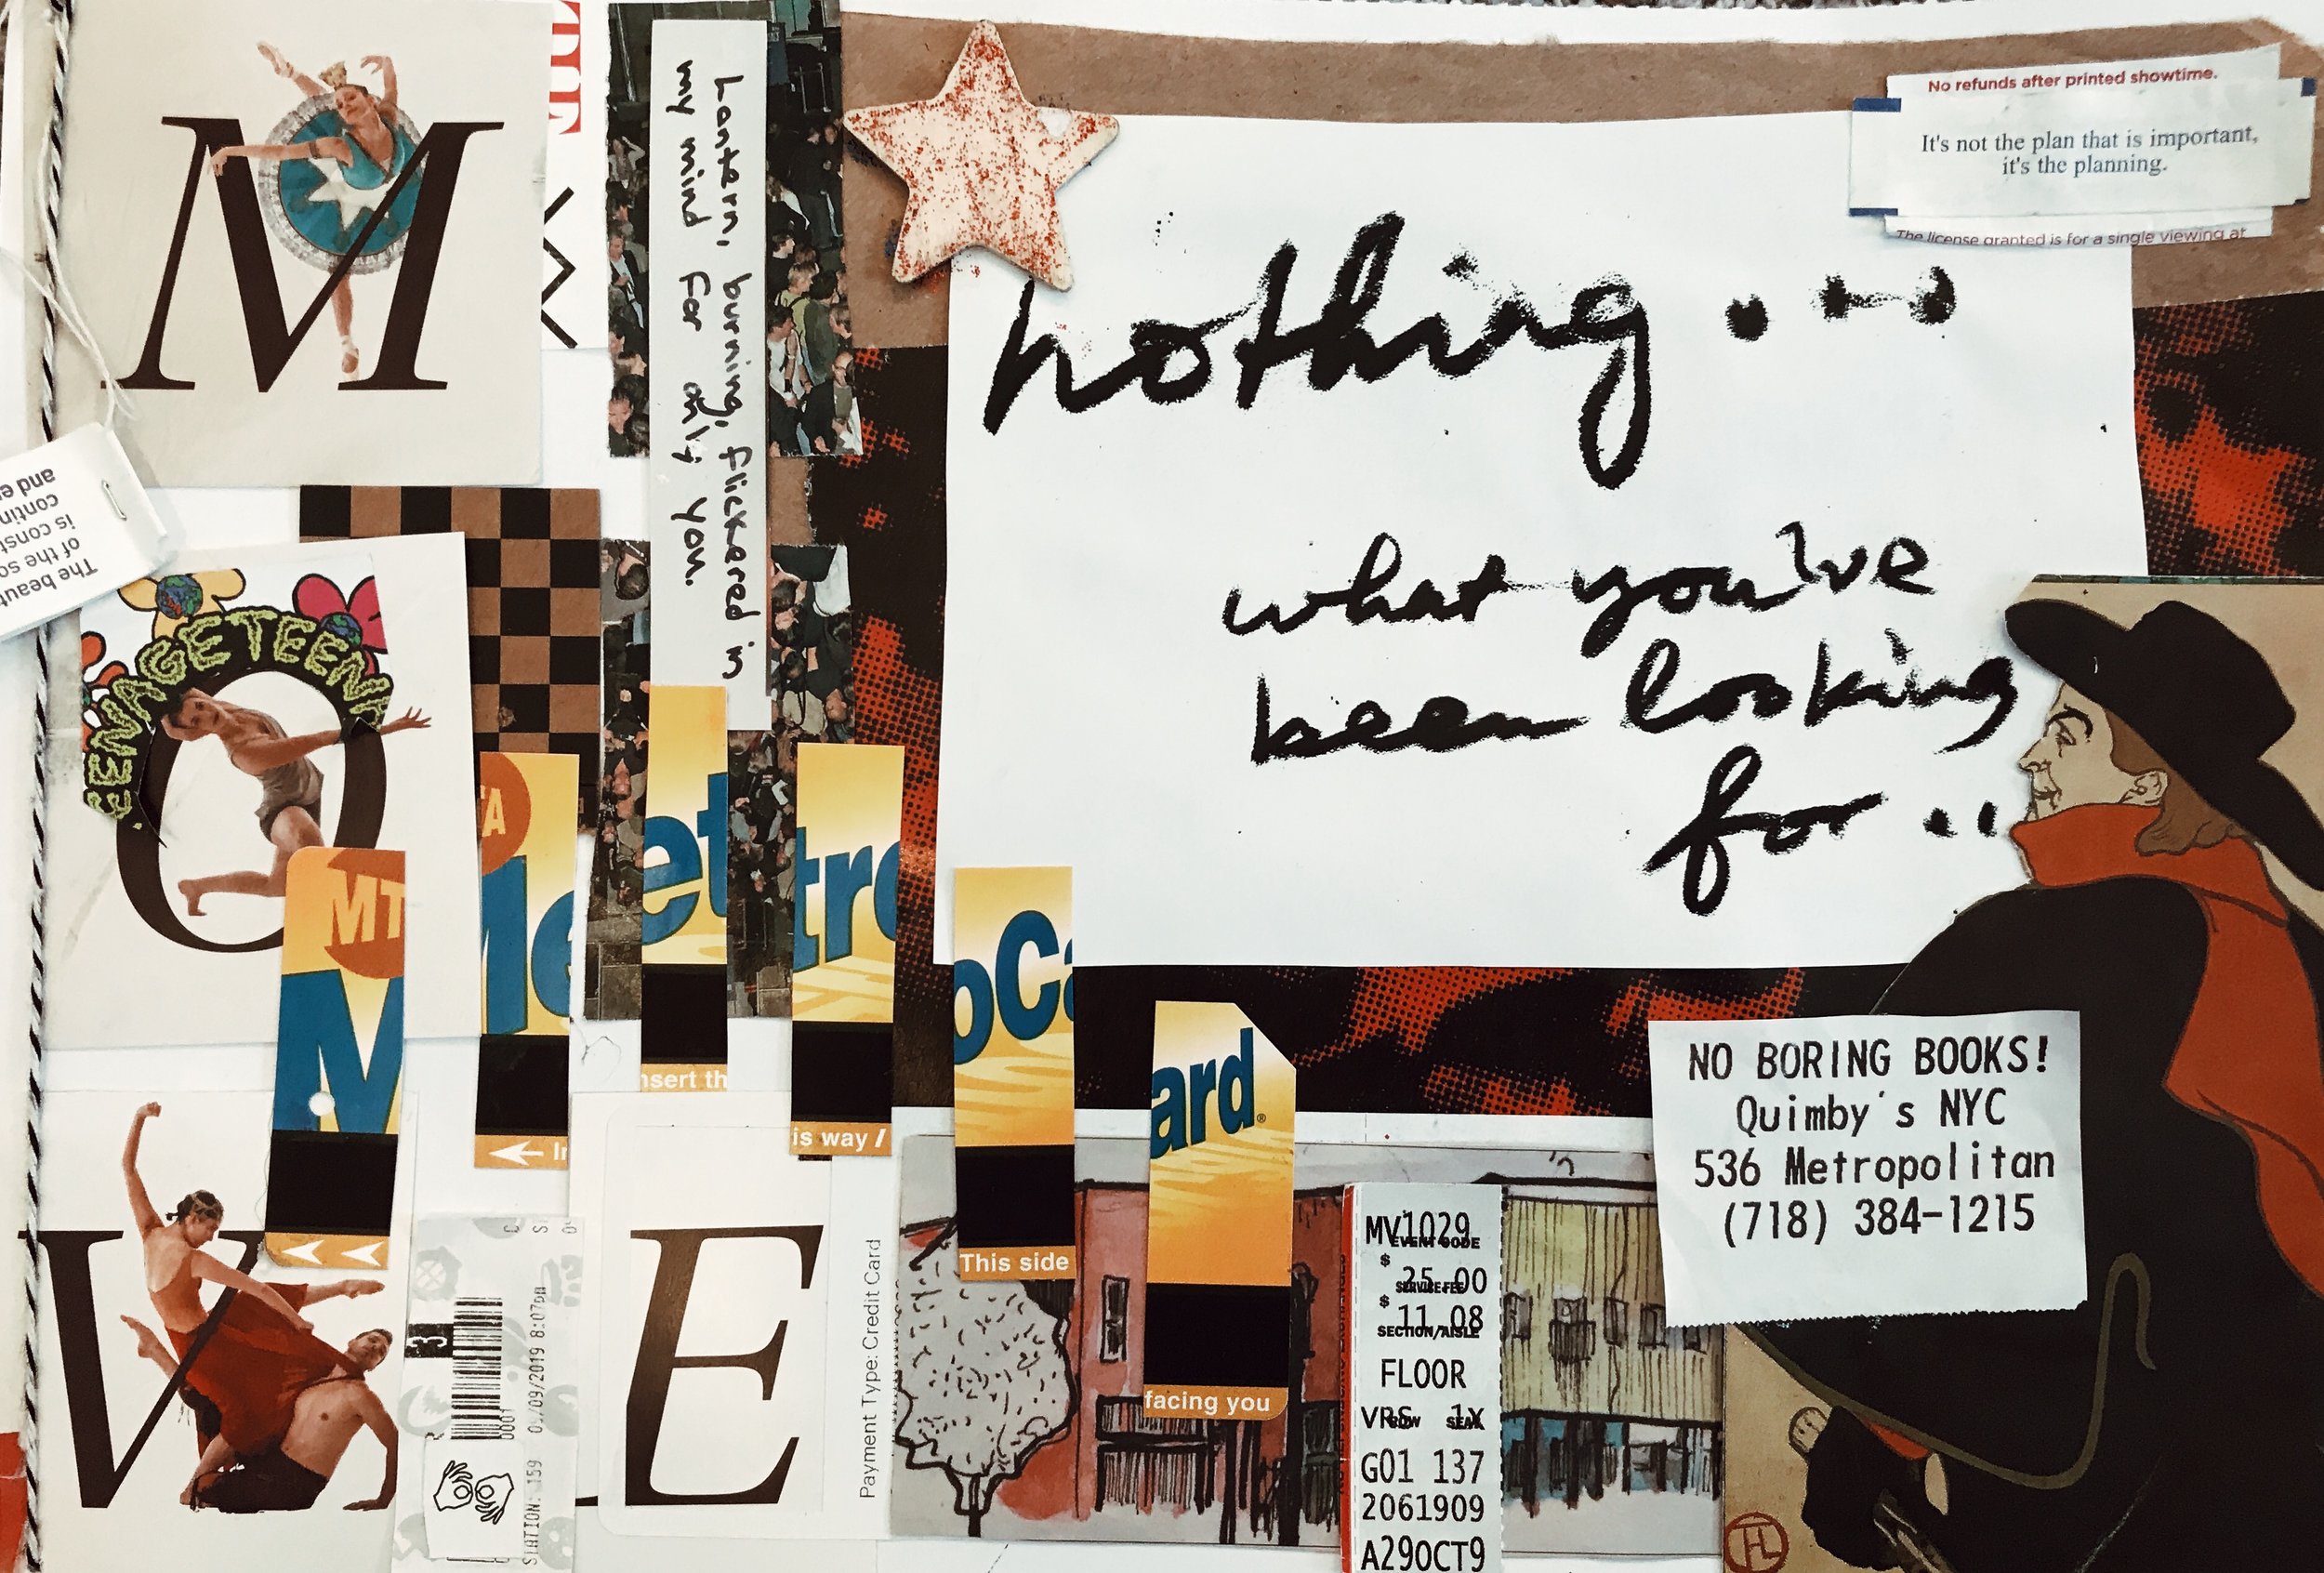 M
O
V
E
Lantern, burning, flickered in
my mind for only you.
nothing...
what you've
been looking
for..
No refunds after printed showtime.
It's not the plan that is important,
it's the planning.
The license granted is for a single viewing at
The beaut
of the so
is const
contin
and e
EENAGETEENA
MT
M
A
Me
et
nsert th
tro
is way /
oCa
This side
ard®
facing you
NO BORING BOOKS!
Quimby's NYC
536 Metropolitan
(718) 384-1215
3
0001
8:07pm
STATION: 159
Payment Type: Credit Card
MV1029
EVENT CODE
$ 25.00
SERVICE FEE
$ 11.08
SECTION/AISLE
FLOOR
VRS 1X
ROW SEAT
G01 137
2061909
A29OCT9